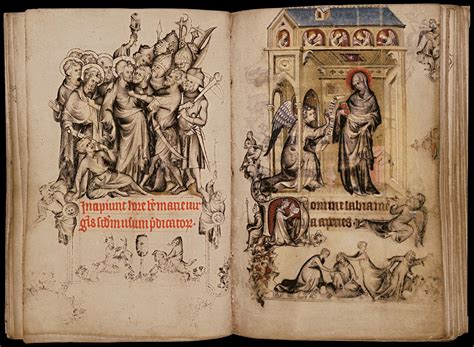 Incipiunt hore sce marie uir
ginis scdm usum pdicator.
Domine labia me
a aperies